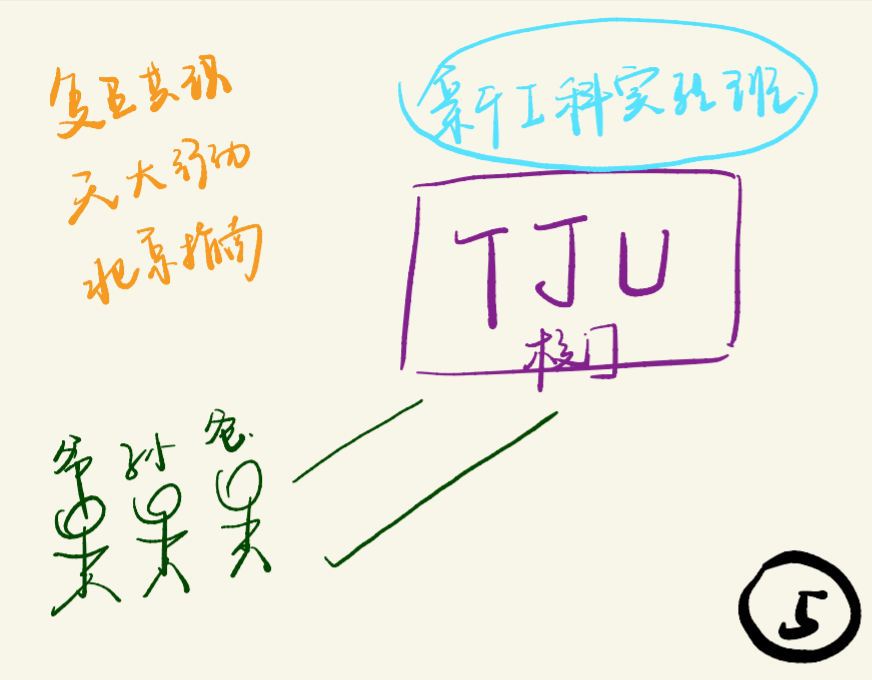 复旦共识
天大行动
北京指南
新工科实验班
TJU
校门
爷 孙 爸
5